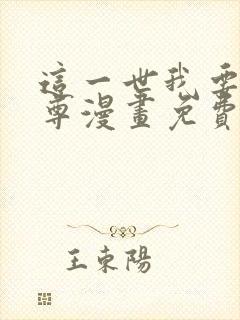 這一世我要
尊漫畫免費
王東陽